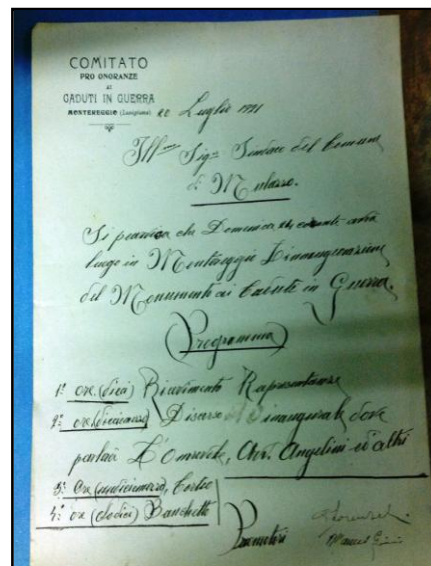 COMITATO
PRO ONORANZE
AI
CADUTI IN GUERRA
MONTEREGGIO (Lunigiana)
20 Luglio 1921
Ill.mo Sig. Sindaco del Comune
di Mulazzo.
Si previene che Domenica 24 corrente avrà
luogo in Montereggio L'inaugurazione
del Monumenti ai Caduti in Guerra.
(Programma)
1° ore (dieci) Ricevimento Rapresentanze
2° ore (dieciemezzo) Discorso inaugurale dove
parlerà L'onorevole, Avv. Angelini ed altri
3° Ore (undiciemezzo), Corteo
4° ore (dodici) Banchetto